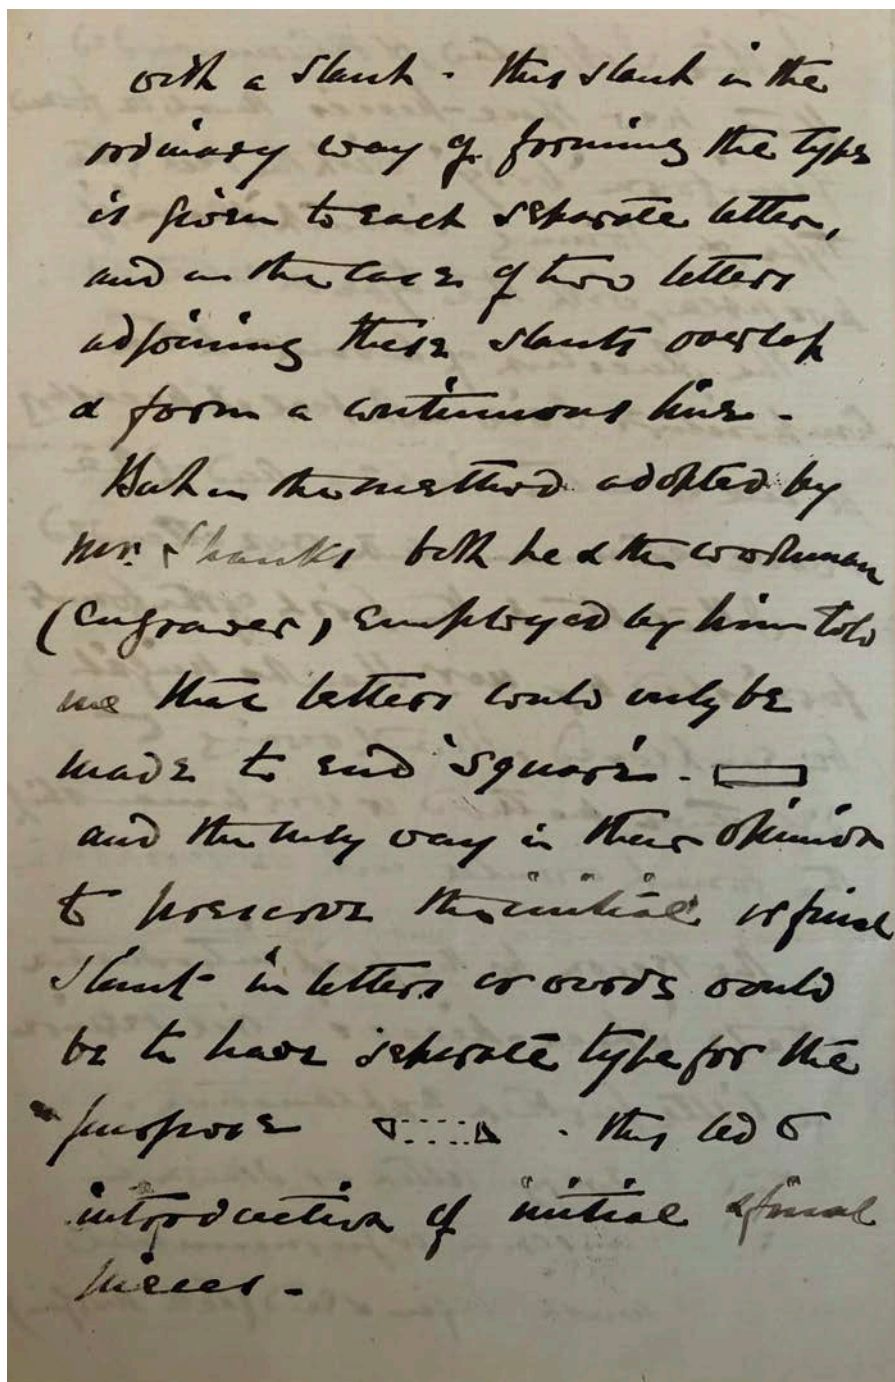 with a slant - this slant in the
ordinary way of forming the type
is given to each separate letter,
and in the case of two letters
adjoining these slants overlap
& form a continuous line -
But in the method adopted by
Mr. Shanks both he & the workman
(engraver) employed by him told
me that letters could only be
made to end 'square' -
and the only way in their opinion
to preserve the initial or final
slant in letters or words would
be to have separate type for the
purpose - this led to
introduction of initial & final
pieces -